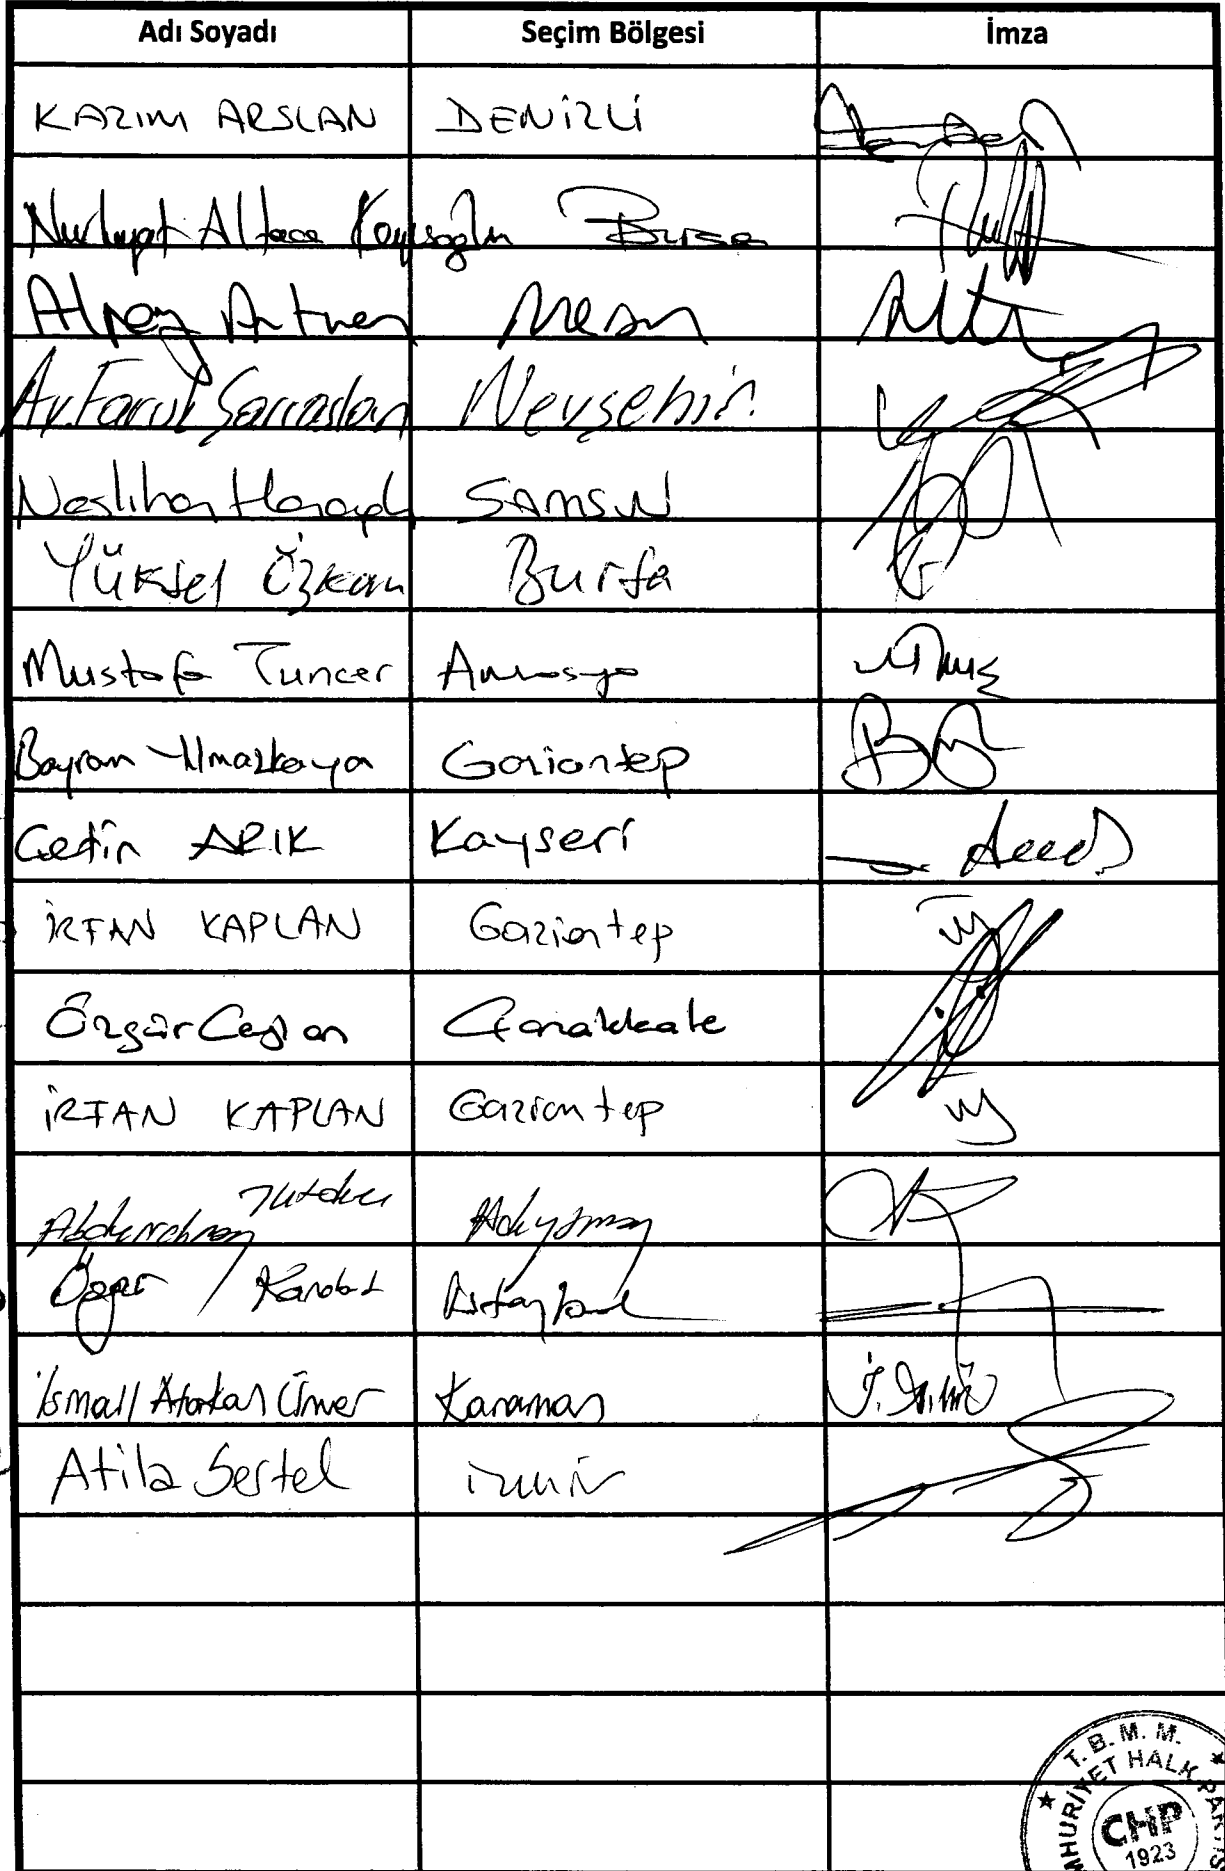 Adı Soyadı Seçim Bölgesi İmza
KAZIM ARSLAN DENİZLİ
Nurhayat Altaca Kayışoğlu Bursa
Alpay Antmen Mersin
Av. Faruk Sarıaslan Nevşehir
Neslihan Hancıoğlu SAMSUN
Yüksel Özkan Bursa
Mustafa Tuncer Amasya
Bayram Yılmazkaya Gaziantep
Çetin ARIK Kayseri
İRFAN KAPLAN Gaziantep
Özgür Ceylan Çanakkale
İRFAN KAPLAN Gaziantep
Abdurrahman Tutdere Adıyaman
Özgür Karabat İstanbul
İsmail Atakan Ünver Karaman
Atila Sertel izmir
T. B. M. M.
CHP
1923